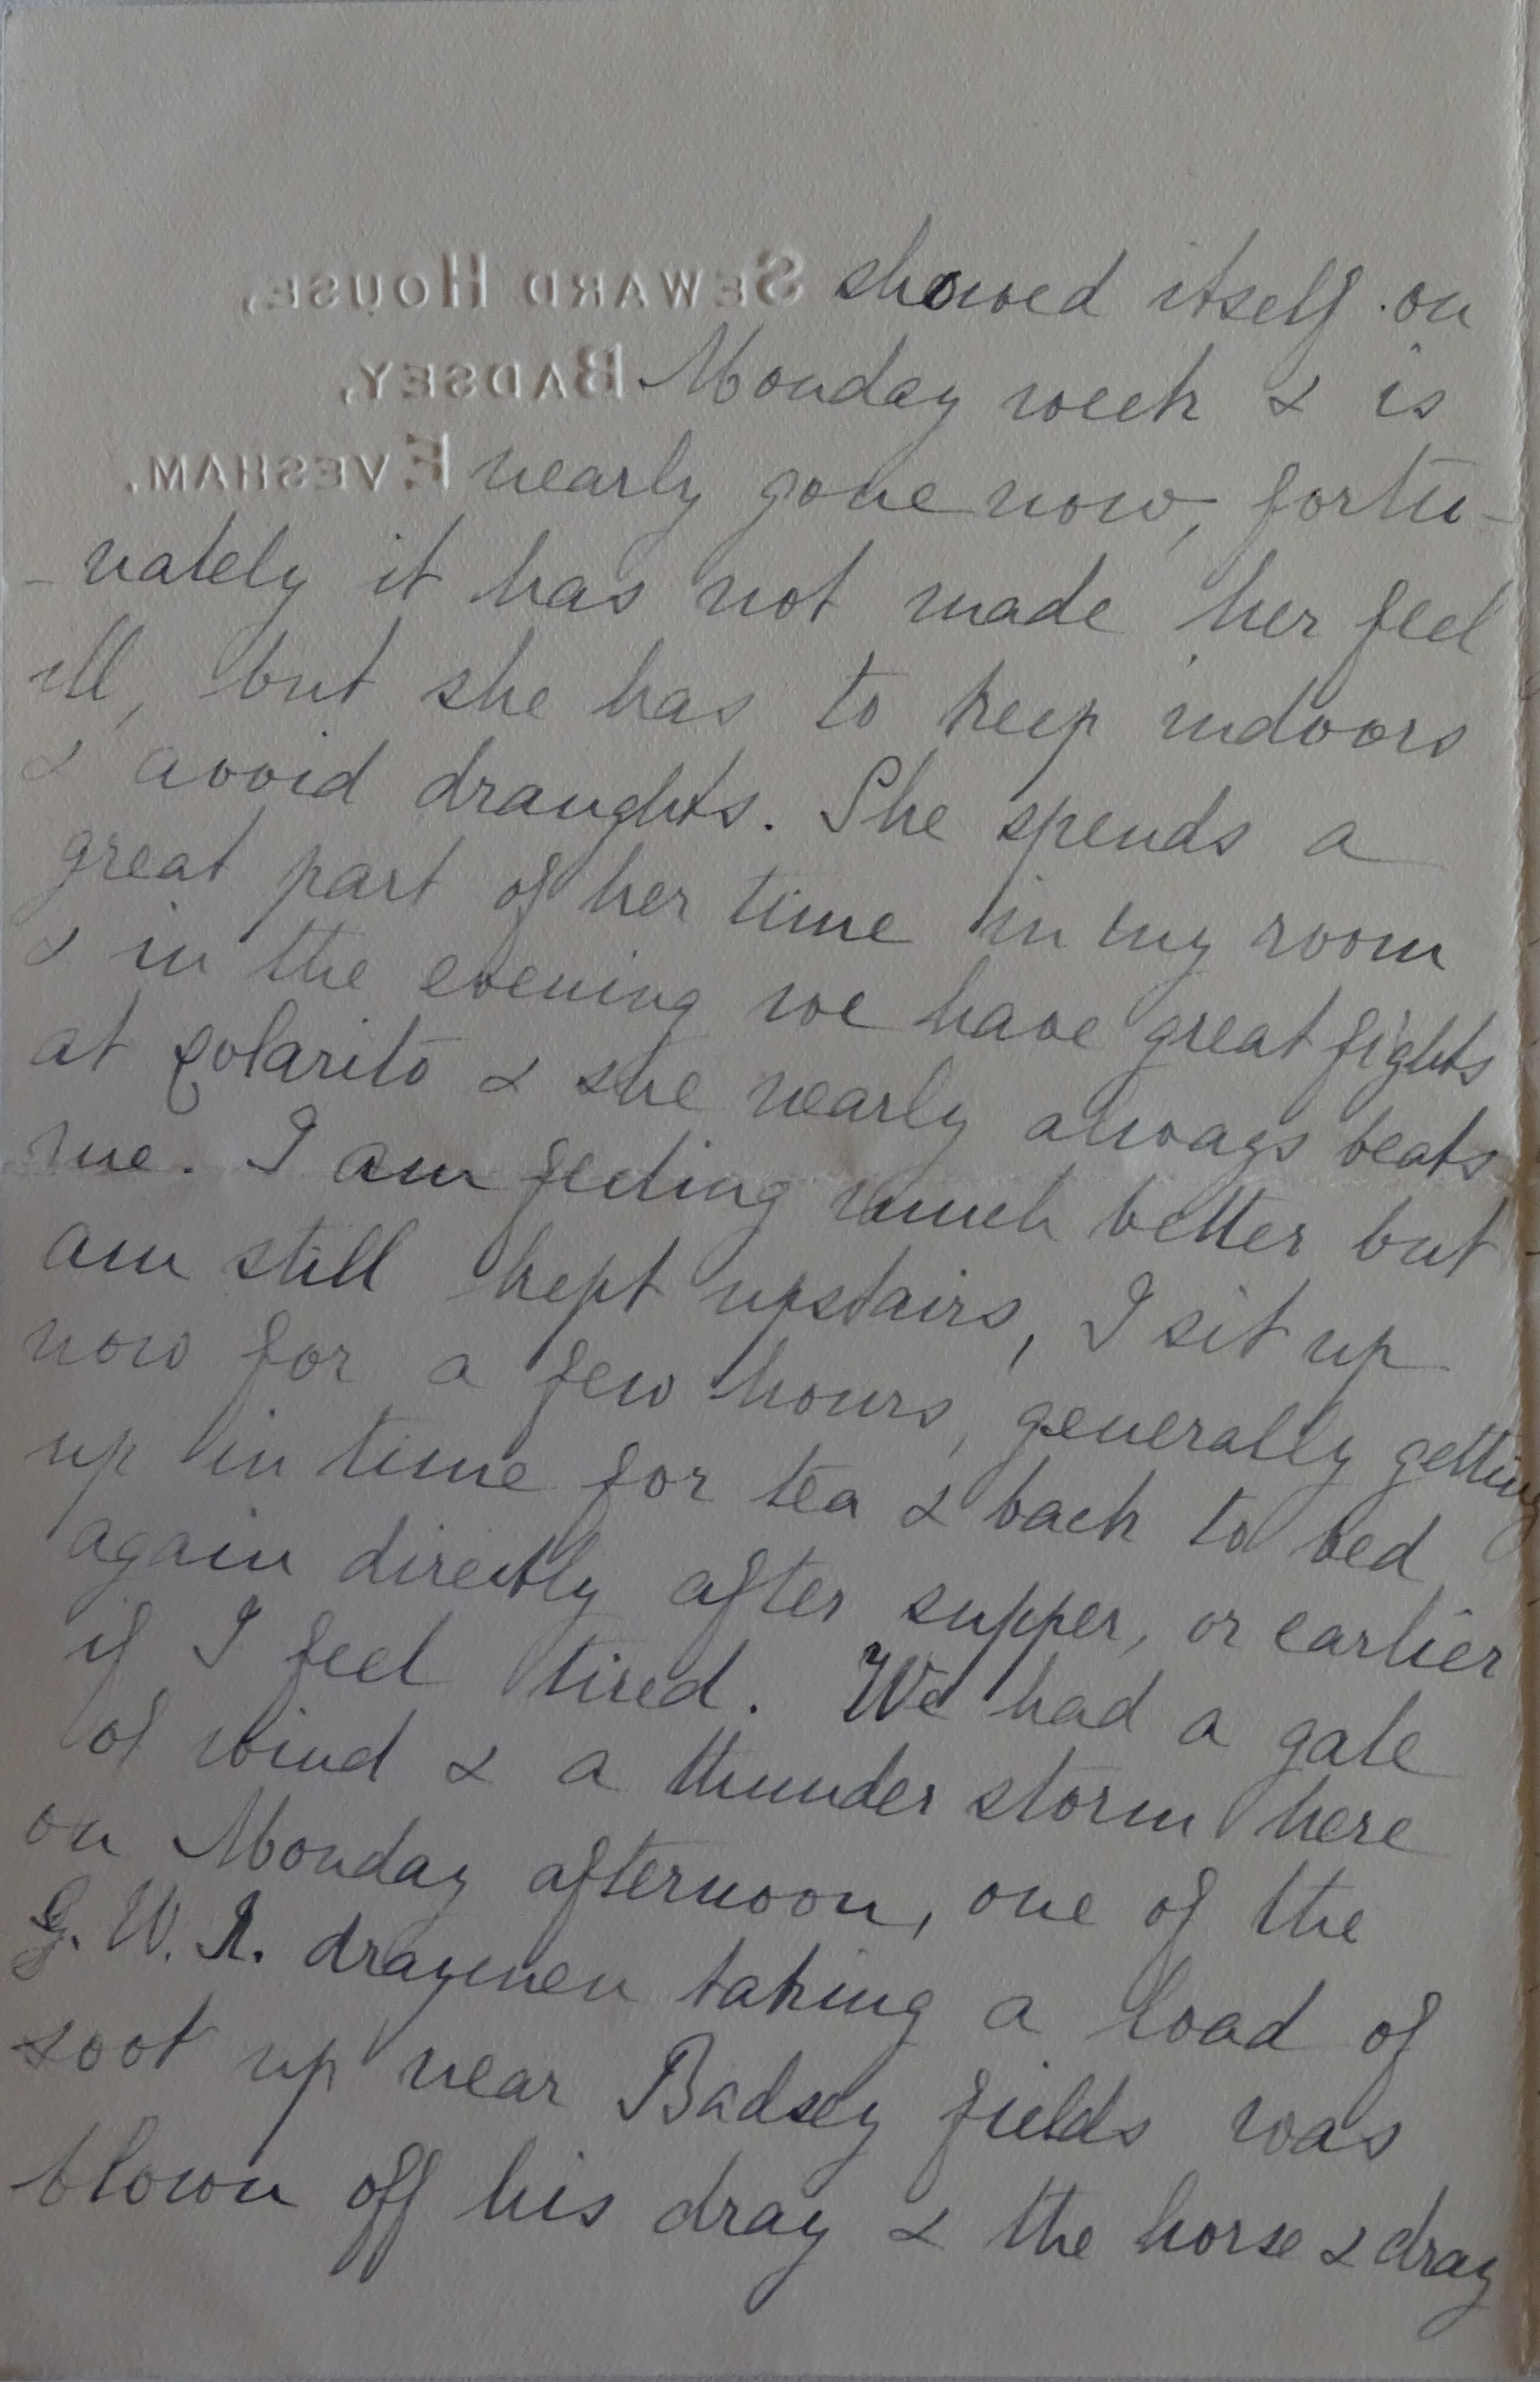 SEWARD HOUSE, showed itself on
BADSEY, Monday week & is
EVESHAM. nearly gone now, fortu-
-nately it has not made her feel
ill, but she has to keep indoors
& avoid draughts. She spends a
great part of her time in my room
& in the evening we have great fights
at & she nearly always beats
me. I am feeling much better but
am still kept upstairs, I sit up
now for a few hours, generally getting
up in time for tea & back to bed
again directly after supper, or earlier
if I feel tired. We had a gale
of wind & a thunder storm here
on Monday afternoon, one of the
G. W. R. draymen taking a load of
soot up near Badsey fields was
blown off his dray & the horse & dray